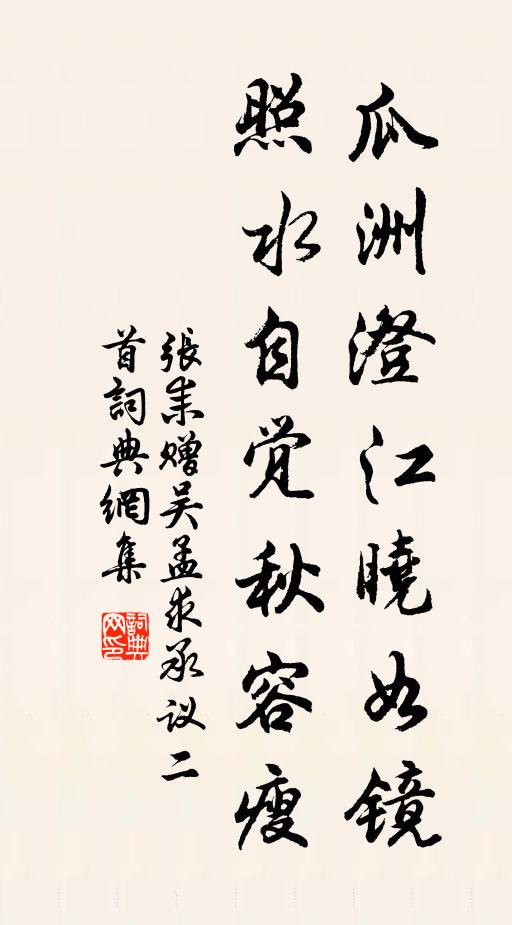 瓜洲澄江曉如镜
照水自觉秋容瘦
張耒赠吴孟求承议二
首詞典網集
詞典
网印